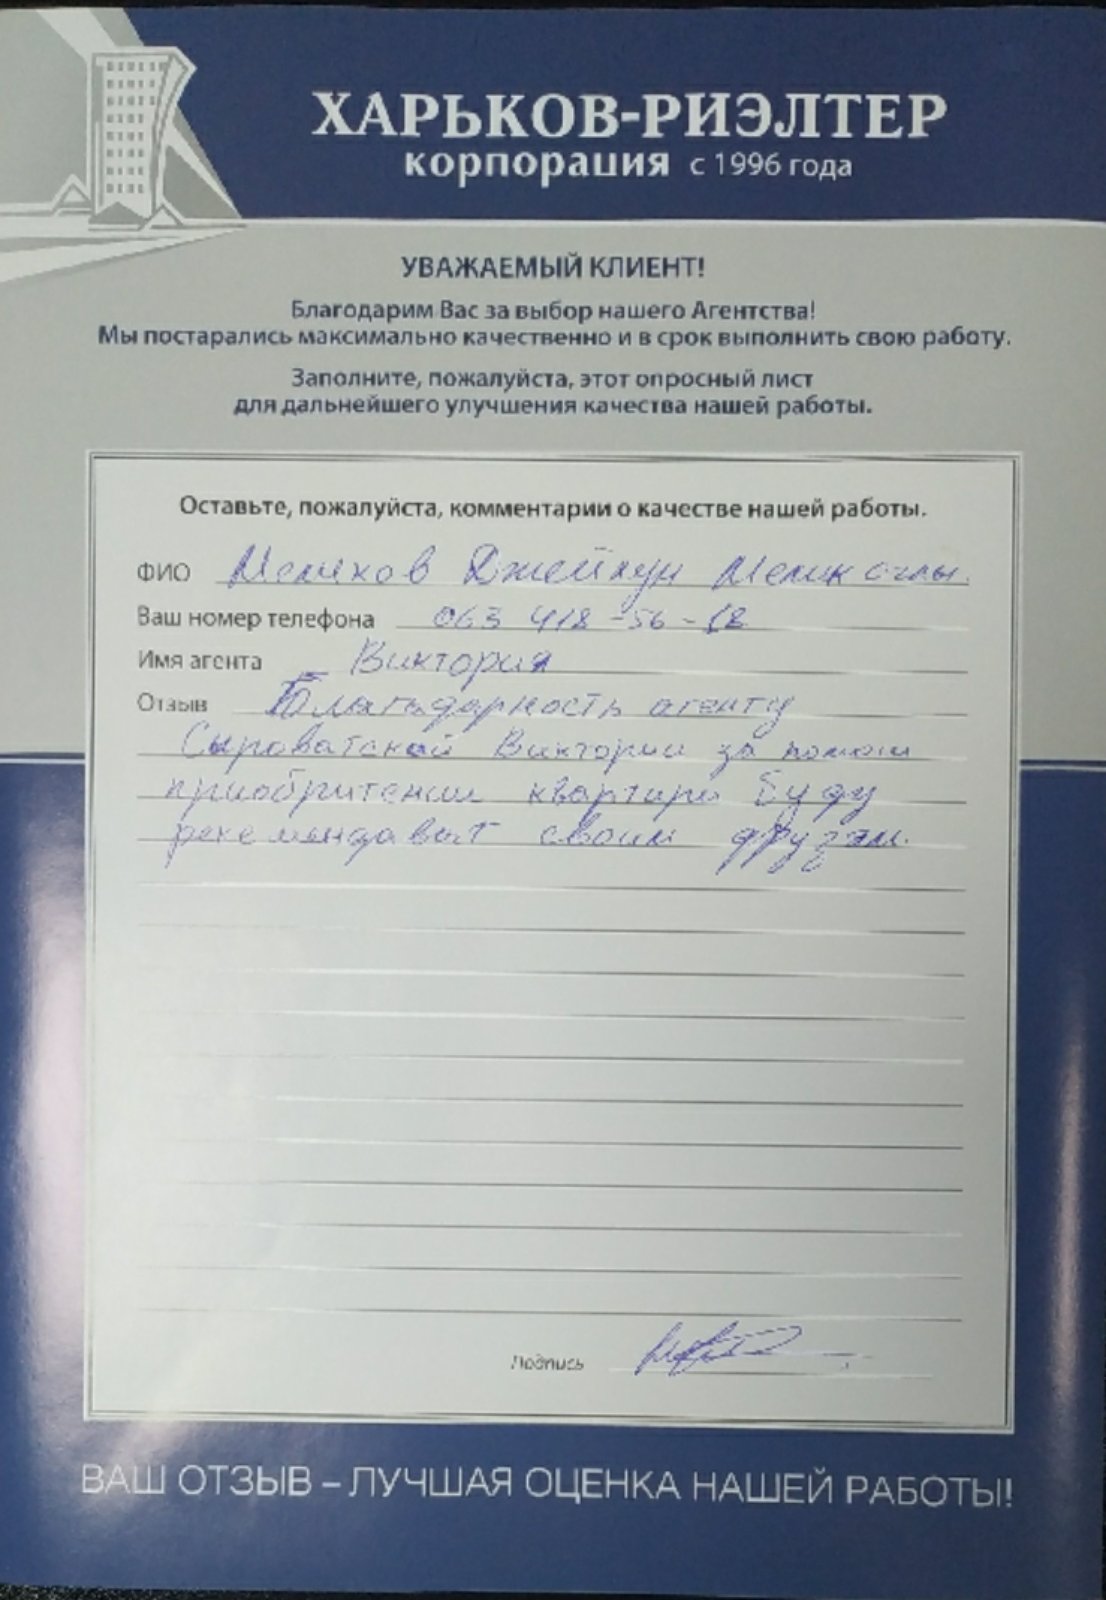 ХАРЬКОВ-РИЭЛТЕР
корпорация с 1996 года
УВАЖАЕМЫЙ КЛИЕНТ!
Благодарим Вас за выбор нашего Агентства!
Мы постарались максимально качественно и в срок выполнить свою работу.
Заполните, пожалуйста, этот опросный лист
для дальнейшего улучшения качества нашей работы.
Оставьте, пожалуйста, комментарии о качестве нашей работы.
ФИО Меликов Джейхун Мелик оглы.
Ваш номер телефона 063 418-56-18
Имя агента Виктория
Отзыв Благодарность агенту
Сыроватской Виктории за помощ
приобритении квартири Буду
рекемендават своим друзям.
Подпись
ВАШ ОТЗЫВ – ЛУЧШАЯ ОЦЕНКА НАШЕЙ РАБОТЫ!